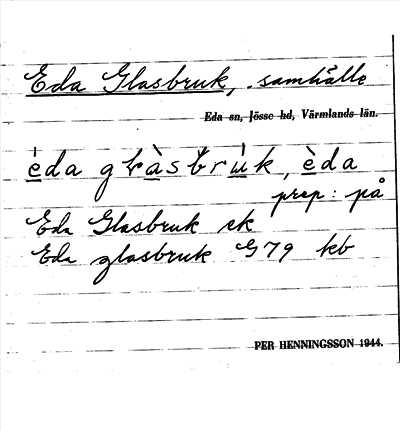 Eda Glasbruk, samhälle
Eda sn, Jösse hd, Värmlands län.
èda glàsbrùk, èda
prep: på
Eda Glasbruk ek
Eda glasbruk G79 kb
PER HENNINGSSON 1944.